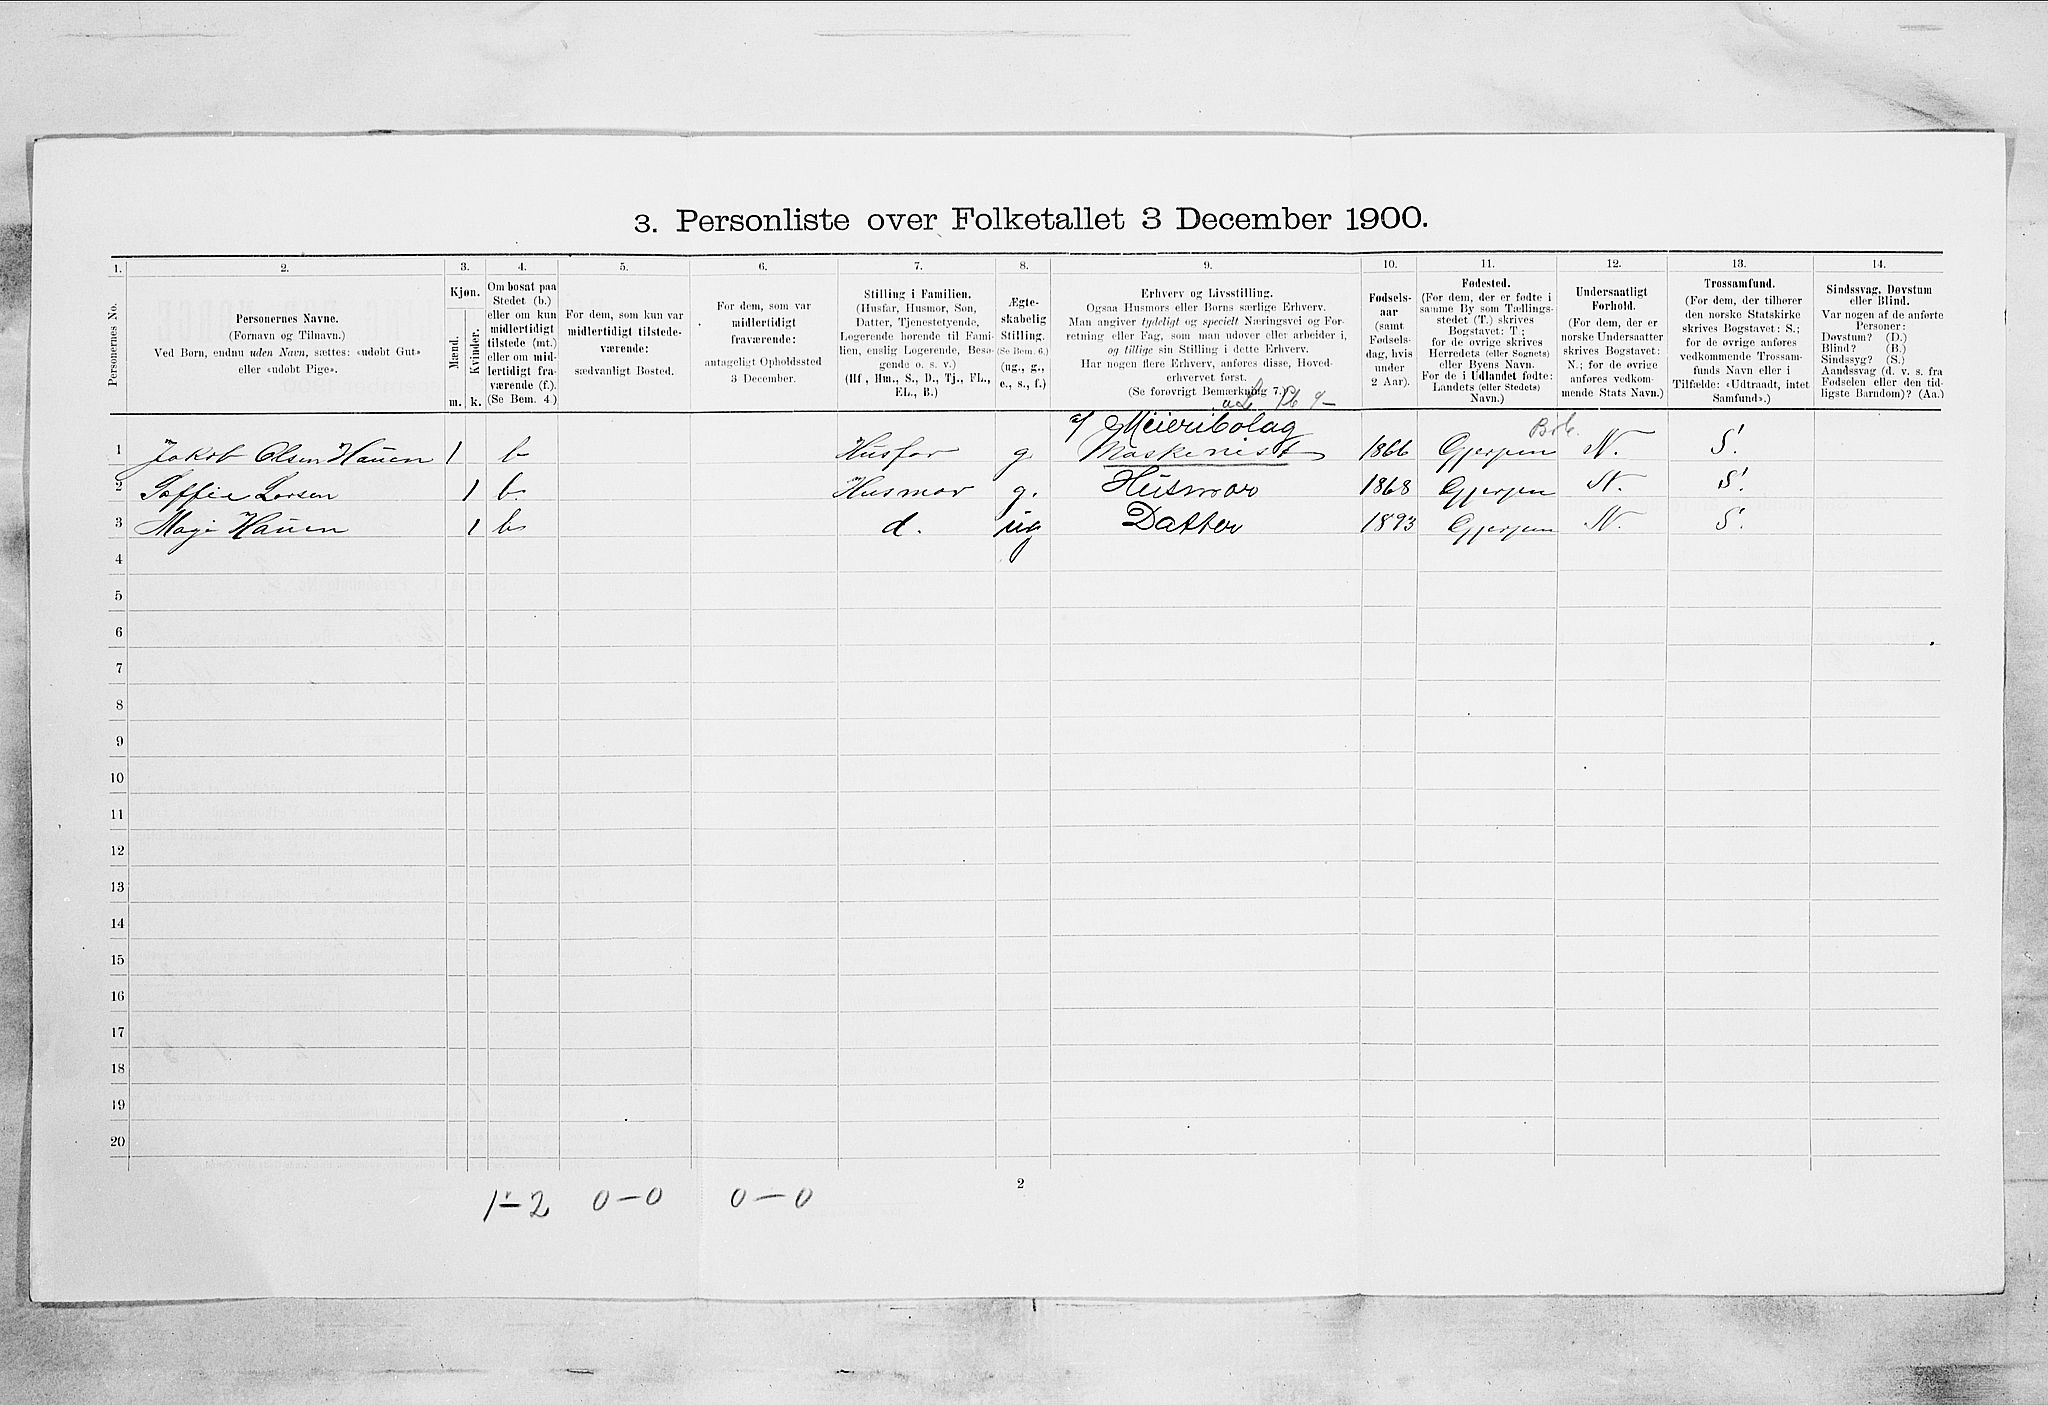 3. Personliste over Folketallet 3 December 1900.
1. 2. 3. 4. 5. 6. 7. 8. 9. 10. 11. 12. 13. 14.
Personernes No.
Personernes Navne.
(Fornavn og Tilnavn.)
Ved Børn, endnu uden Navn, sættes: «udøbt Gut»
eller «udøbt Pige».
Kjøn.
Mænd.
Kvinder.
m. k.
Om bosat paa
Stedet (b.)
eller om kun
midlertidigt
tilstede (mt.)
eller om mid-
lertidigt fra-
værende (f.).
(Se Bem. 4.)
For dem, som kun var
midlertidigt tilstede-
værende:
sædvanligt Bosted.
For dem, som var
midlertidigt
fraværende:
antageligt Opholdssted
3 December.
Stilling i Familien.
(Husfar, Husmor, Søn,
Datter, Tjenestetyende,
Logerende hørende til Fami-
lien, enslig Logerende, Besø-
gende o. s. v.)
(Hf., Hm., S., D., Tj., FL.,
EL., B.)
Ægte-
skabelig
Stilling.
(Se Bem. 6.)
(ug., g.,
e., s., f.)
Erhverv og Livsstilling.
Ogsaa Husmors eller Børns særlige Erhverv.
Man angiver tydeligt og specielt Næringsvei og For-
retning eller Fag, som man udøver eller arbeider i,
og tillige sin Stilling i dette Erhverv.
Har nogen flere Erhverv, anføres disse, Hoved-
erhvervet først.
(Se forøvrigt Bemærkning 7.)
Fødsels-
aar
(samt
Fødsels-
dag, hvis
under
2 Aar).
Fødested.
(For dem, der er fødte i
samme By som Tællings-
stedet (T.) skrives
Bogstavet: T;
for de øvrige skrives
Herredets (eller Sognets)
eller Byens Navn.
For de i Udlandet fødte:
Landets (eller Stedets)
Navn.)
Undersaatligt
Forhold.
(For dem, der er
norske Undersaatter
skrives Bogstavet:
N.; for de øvrige
anføres vedkom-
mende Stats Navn.)
Trossamfund.
(For dem, der tilhører
den norske Statskirke
skrives Bogstavet: S.;
for de øvrige anføres
vedkommende Trossam-
funds Navn eller i
Tilfælde: «Udtraadt, intet
Samfund».)
Sindssvag, Døvstum
eller Blind.
Var nogen af de anførte
Personer:
Døvstum? (D.)
Blind? (B.)
Sindssyg? (S.)
Aandssvag (d. v. s. fra
Fødselen eller den tid-
ligste Barndom)? (Aa.)
Meieribolag
1 Jakob Olsen Hauen 1 b Husfar g. Maskenist 1866 Gjerpen N. S.
2 Soffie Larsen 1 b. Husmor g. Husmor 1868 Gjerpen N. S.
3 Maje Hauen 1 b d. ug Datter 1893 Gjerpen N. S.
4
5
6
7
8
9
10
11
12
13
14
15
16
17
18
19
20
2
1-2 0-0 0-0